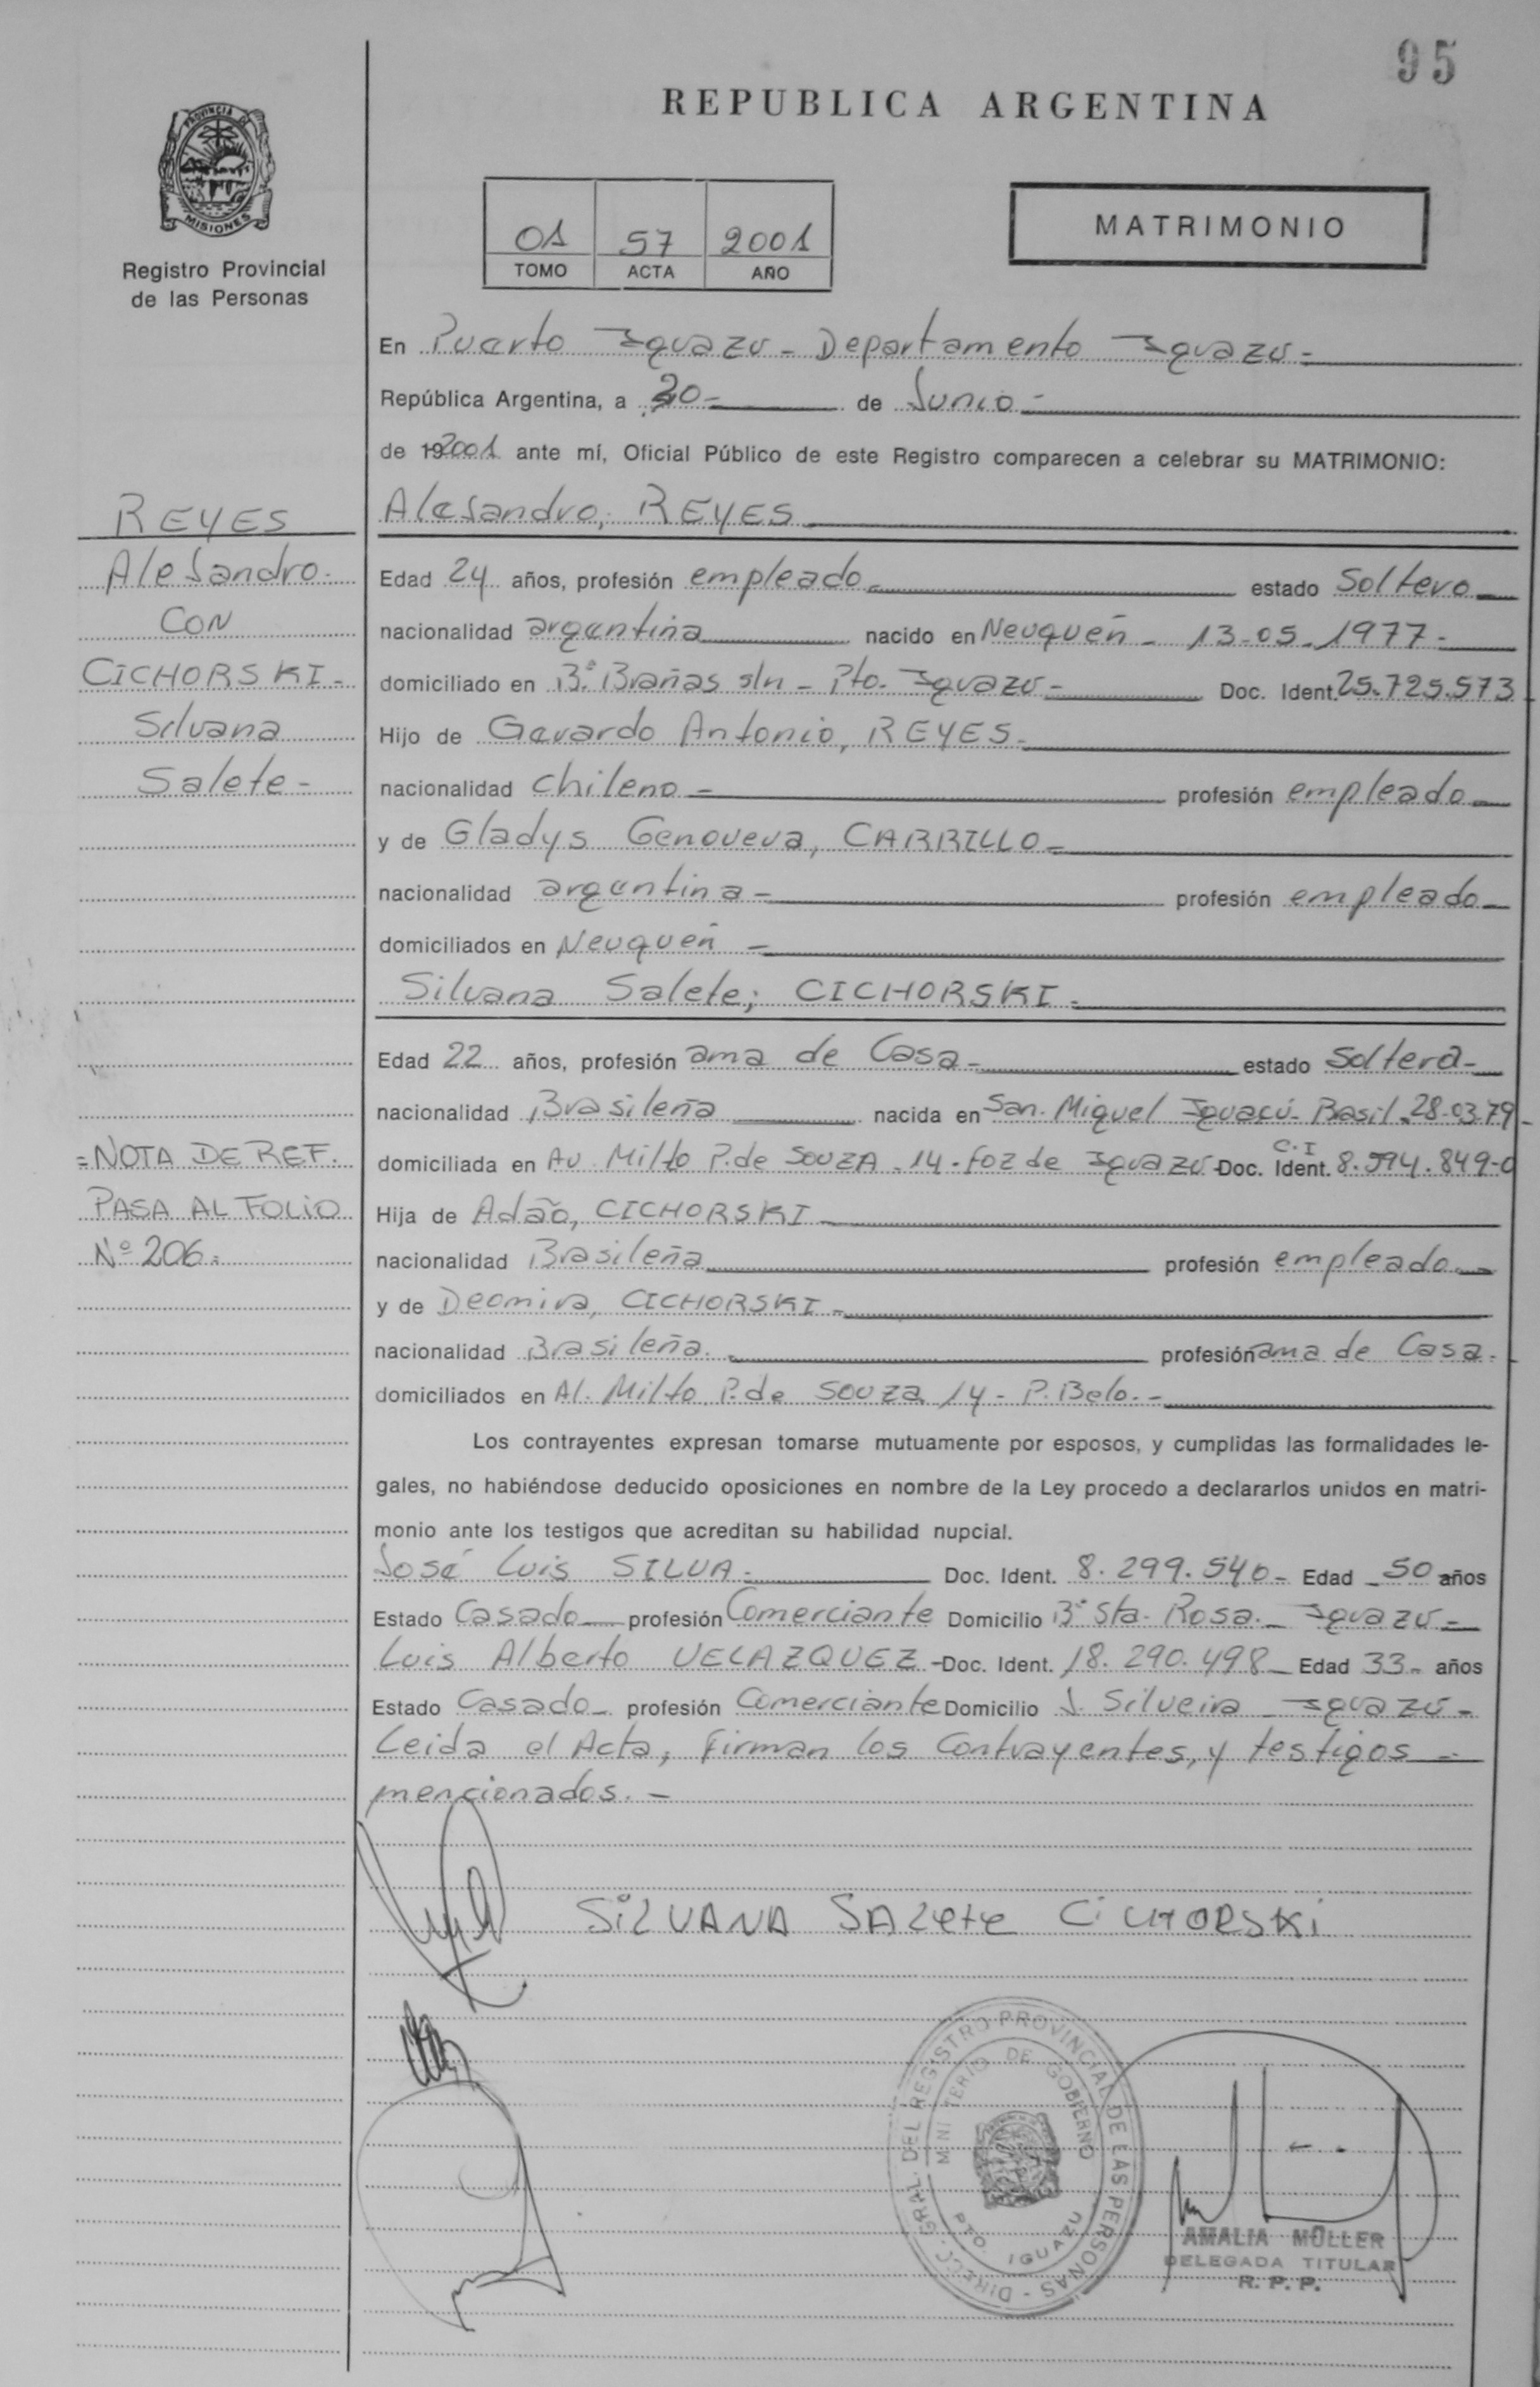 95
REPUBLICA ARGENTINA
PROVINCIA DE
MISIONES
Registro Provincial
de las Personas
01 57 2001
TOMO ACTA AÑO
MATRIMONIO
En Puerto Iguazú - Departamento Iguazú -
República Argentina, a 20 - de Junio -
de 192001 ante mí, Oficial Público de este Registro comparecen a celebrar su MATRIMONIO:
Alejandro, REYES
Edad 24 años, profesión empleado estado Soltero
nacionalidad argentina nacido en Neuquén - 13-05-1977 -
domiciliado en Bº Brañas s/n - Pto. Iguazú - Doc. Ident. 25.725.573
Hijo de Gerardo Antonio, REYES -
nacionalidad chileno - profesión empleado
y de Gladys Genoveva, CARRILLO -
nacionalidad argentina - profesión empleado
domiciliados en Neuquén -
Silvana Salete; CICHORSKI -
Edad 22 años, profesión ama de Casa - estado Soltera -
nacionalidad Brasileña nacida en San Miguel Iguaçú - Brasil - 28-03-79 -
domiciliada en Av. Milto P. de SOUZA - 14 - Foz de Iguazú - Doc. Ident. C.I 8.994.849-0
Hija de Adão, CICHORSKI -
nacionalidad Brasileña profesión empleado
y de Deomira, CICHORSKI -
nacionalidad Brasileña - profesión ama de Casa -
domiciliados en Al. Milto P. de SOUZA 14 - P. Belo. -
Los contrayentes expresan tomarse mutuamente por esposos, y cumplidas las formalidades le-
gales, no habiéndose deducido oposiciones en nombre de la Ley procedo a declararlos unidos en matri-
monio ante los testigos que acreditan su habilidad nupcial.
José Luis SILVA - Doc. Ident. 8.299.540 - Edad 50 años
Estado Casado profesión Comerciante Domicilio Bº Sta. Rosa - Iguazú -
Luis Alberto VELAZQUEZ - Doc. Ident. 18.290.498 - Edad 33 - años
Estado Casado - profesión Comerciante Domicilio J. Silveira Iguazú -
Leida el Acta, Firman los Contrayentes, y testigos -
mencionados. -
SiLVANA SALete CiCHORSKi
REYES
Alejandro.
CON
CICHORSKI -
Silvana
Salete -
= NOTA DE REF.
PASA AL FOLIO
Nº 206 =
DIRECC. GRAL. DEL REGISTRO PROVINCIAL DE LAS PERSONAS -
MINISTERIO DE GOBIERNO
PTO. IGUAZU
AMALIA MÜLLER
DELEGADA TITULAR
R. P. P.